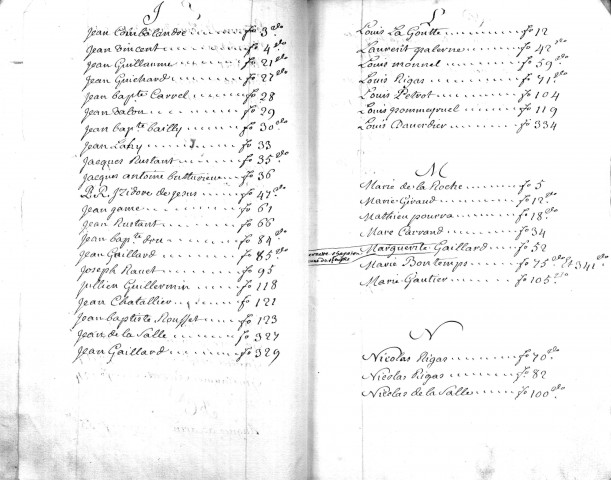 J
Jean Combalandre fo 3 vo
Jean Vincent fo 4 vo
Jean Guillaume fo 21 vo
Jean Guichard fo 27 vo
Jean bapte Carrel fo 28
Jean Valou fo 29
Jean bapte bailly fo 30 vo
Jean Lahy fo 33
Jacques Rustant fo 35 vo
Jacques antoine fo 36
R.P. Izidore de Jesus fo 47 vo
Jean game fo 61
Jean Rustant fo 66
Jean bapte dru fo 84 vo
Jean Guillard fo 85 vo
Joseph Ravet fo 95
Jullien Guillermin fo 118
Jean Chatallier fo 121
Jean baptiste Rousset fo 123
Jean de la Salle fo 327
Jean Gaillard fo 329
L
Louis La Goutte fo 12
Laurent palerne fo 42 vo
Louis monnel fo 59 vo
Louis Rigas fo 71 vo
Louis Petrot fo 104
Louis pommeyruel fo 119
Louis Daverdier fo 334
M
Marie de la Roche fo 5
Marie Giraud fo 12 vo
Mathieu pourra fo 18 vo
Marc Carrand fo 34
Marguerite Gaillard fo 52
Marie Bontemps fo 75 vo et 341 vo
Marie Gautier fo 105 vo
N
Nicolas Rigas fo 70 vo
Nicolas Rigas fo 82
Nicolas de la Salle fo 100 vo